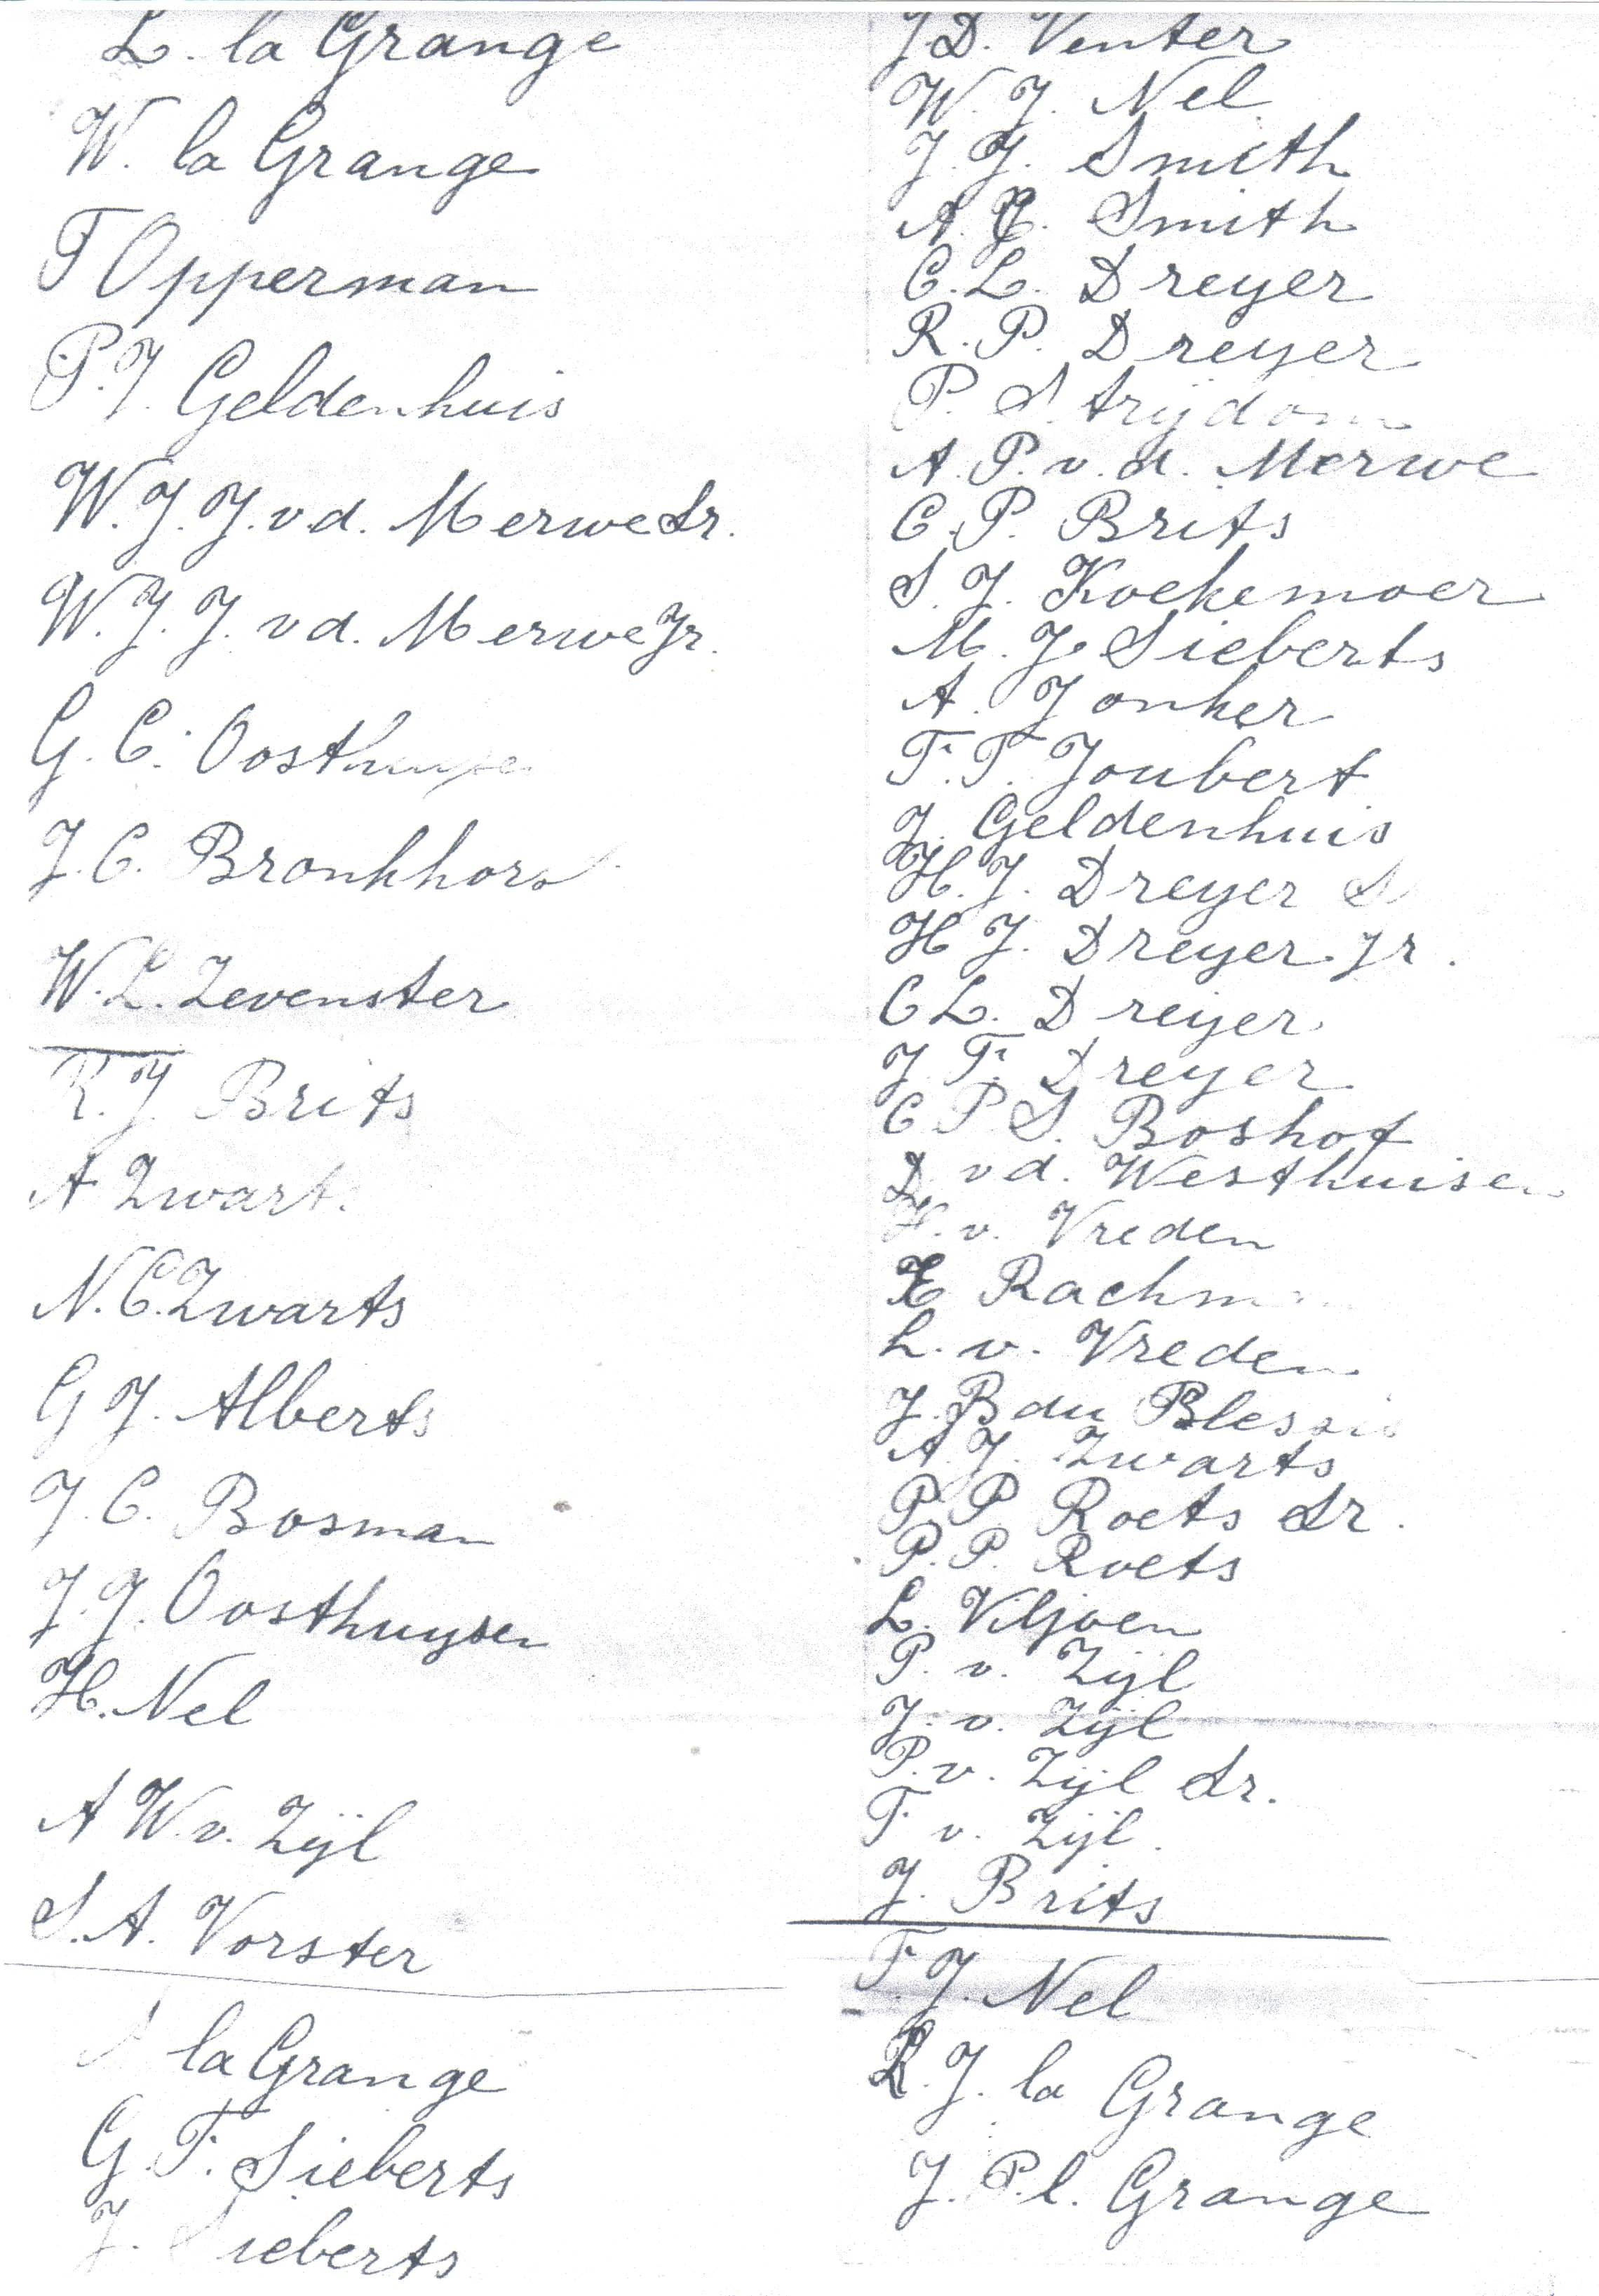 L. la Grange
W. la Grange
F Opperman
P.J. Geldenhuis
W.J.J. v.d. Merwe Sr.
W.J.J. v d. Merwe Jr.
G. C. Oosthuyse
J.C. Bronkhors
W.L. Zevenster
R.J. Brits
A Zwart.
N.C. Zwarts
G J. Alberts
J.C. Bosman
J.J. Oosthuysen
H. Nel
A W. v. Zijl
S.A. Vorster
la Grange
G.F. Sieberts
J. Sieberts
J.D. Venter
W. J. Nel
J.J. Smith
A. Smith
C.L. Dreyer
R.P. Dreyer
P. Strijdom
A.P. v.d. Merwe
C.P. Brits
S.J. Koekemoer
M.J. Sieberts
A. Jonker
F.T. Joubert
J. Geldenhuis
H.J. Dreyer S
H J. Dreyer Jr.
C L. Dreijer
J.F. Dreyer
C P S. Boshof
D v d. Westhuisen
H. v. Vreden
E Rachm
L. v. Vreden
J. B du Blessis
A.J. Zwarts
P P Roets Sr.
P.P. Roets
L. Viljoen
P. v. Zijl
J. v. Zijl
P. v. Zijl Sr.
F v. Zijl.
J. Brits
F.J. Nel
R.J. la Grange
J.P. l. Grange